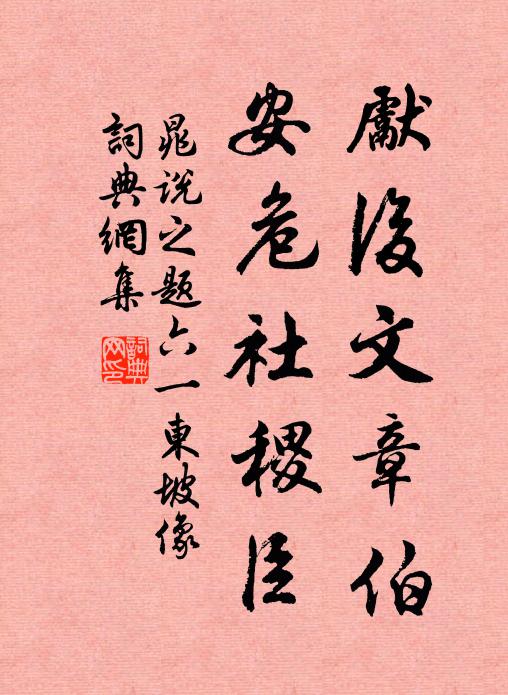 獻後文章伯
安危社稷臣
晁說之題六一東坡像
詞典網集
詞典網印